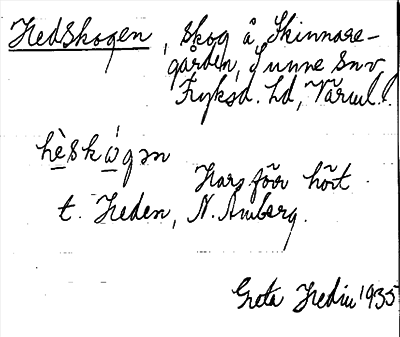 Hedskogen, skog å Skinnare-
gården, Sunne Sn.v.
Fryksd. hd, Värml.
hèskógən
Har förr hört
t. Heden, N. Amberg.
Greta Hedin 1935